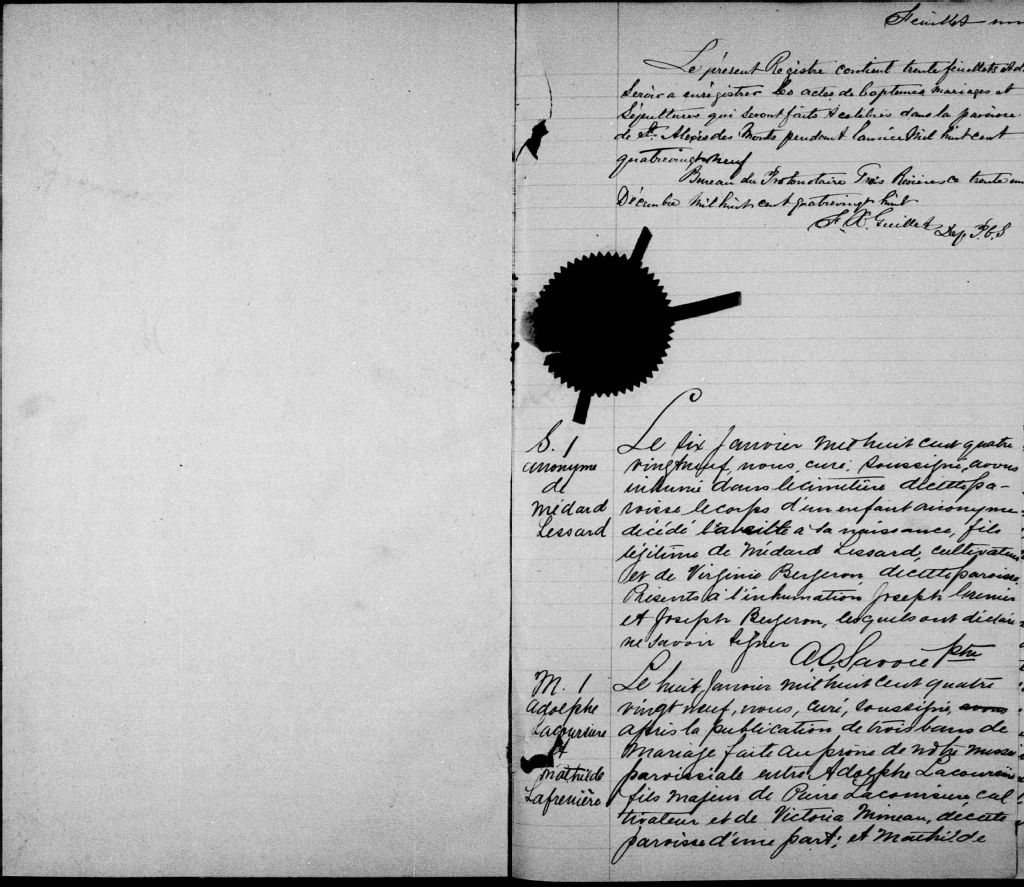 Feuillet un
Le présent Registre contient trente feuillets et d
Servir a enrégistrer les actes de baptemes mariages et
Sépultures qui seront faits & célébrés dans la paroisse
de St. Alexis des Monts pendant l'année Mil huit cent
quatrevingt neuf
Bureau du Protonotaire Trois Rivières ce trente un
Décembre Mil huit cent quatrevingt huit
F. X. Guillet Dep. P.C.S
S. 1
anonyme
de
Médard
Lessard
Le six Janvier mil huit cent quatre
vingt neuf, nous, curé soussigné, avons
inhumé dans le cimetière de cette pa-
roisse le corps d'un enfant anonyme
décédé à sa naissance, fils
légitime de Médard Lessard, cultivateur
et de Virginie Bergeron de cette paroisse.
Présents à l'inhumation Joseph
et Joseph Bergeron, lesquels ont déclaré
ne savoir signer
A. O. Savoie Ptre
M. 1
Adolphe
Lacoursière
et
Mathilde
Lafrenière
Le huit Janvier mil huit cent quatre
vingt neuf, nous, curé, soussigné, avons
après la publication de trois bans de
Mariage faite au prône de notre messe
paroissiale entre Adolphe Lacoursière
fils majeur de Pierre Lacoursière, cul
tivateur et de Victoria Mineau, de cette
paroisse d'une part; et Mathilde